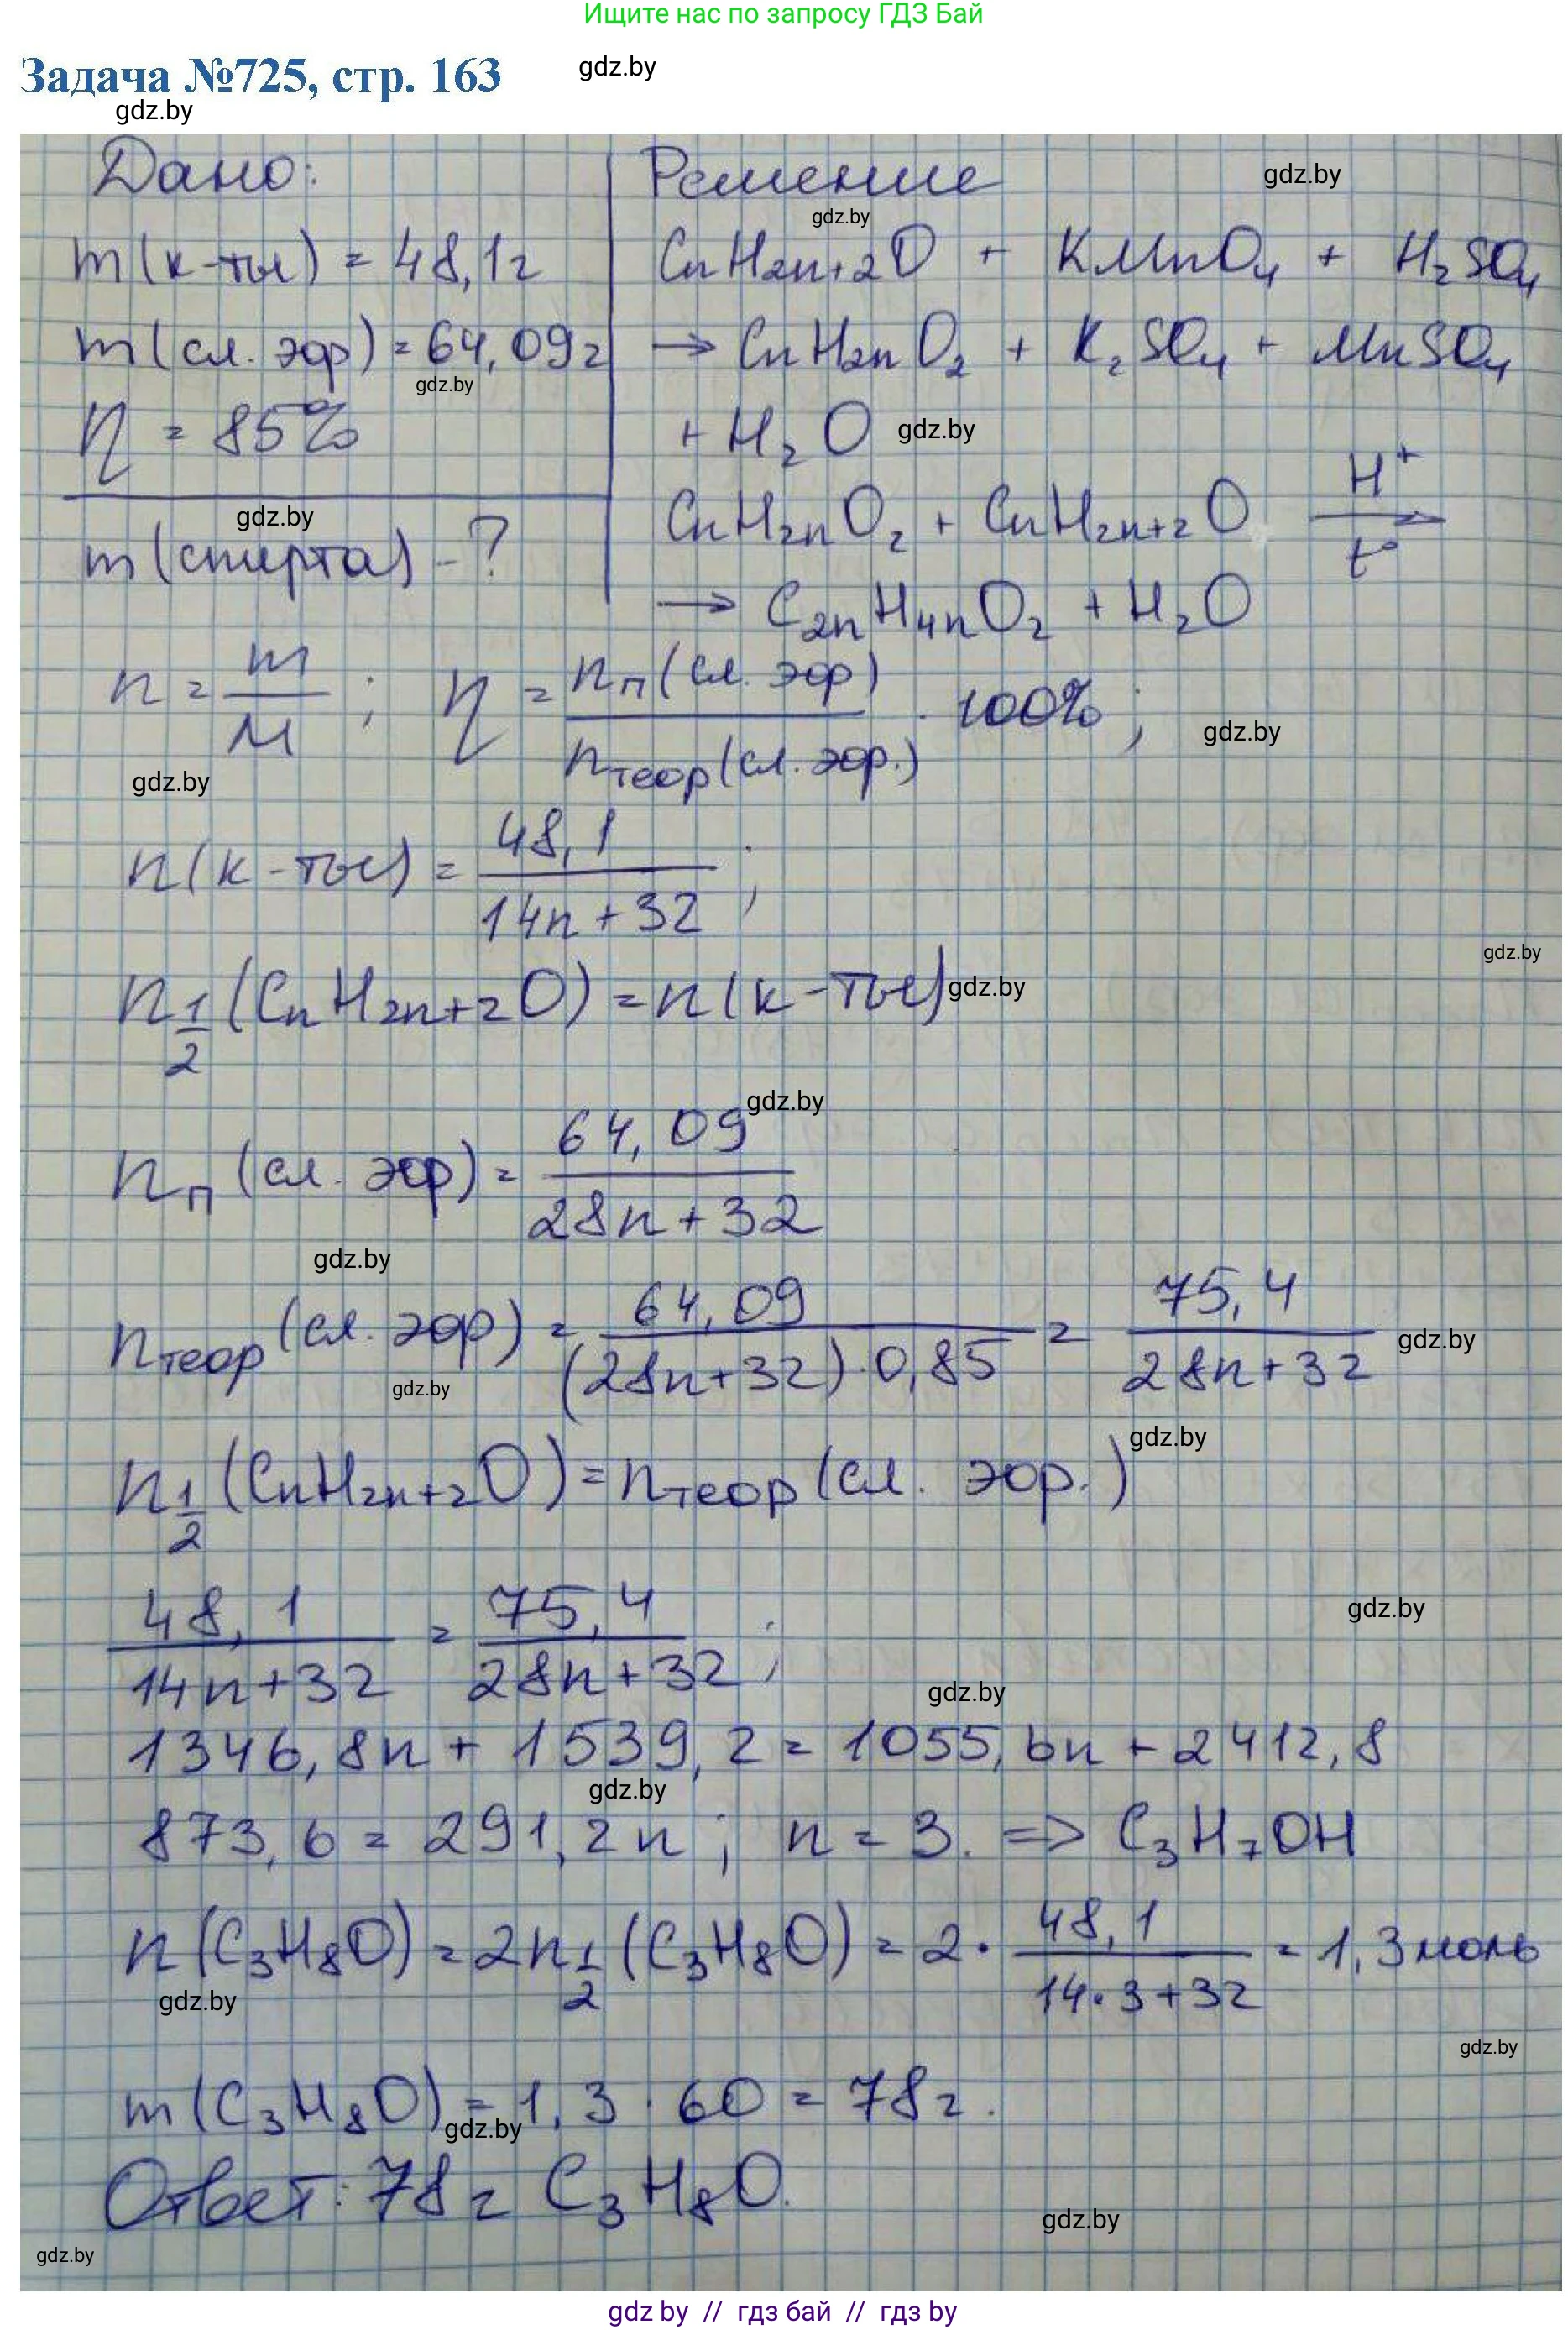 Ищите нас по запросу ГДЗ Бай
Задача №725, стр. 163
gdz.by
gdz.by
Дано:
m(к-ты) = 48,1г
m(сл. эфр) = 64,09г
gdz.by
η = 85%
gdz.by
m(спирта) - ?
Решение
gdz.by
gdz.by
CnH2n+2O + KMnO4 + H2SO4
→ CnH2nO2 + K2SO4 + MnSO4
+ H2O
gdz.by
CnH2nO2 + CnH2n+2O H+ t°
→ C2nH4nO2 + H2O
n = m/M ; η = nп(сл. эфр)/nтеор(сл. эфр.) · 100% ;
gdz.by
gdz.by
n(к-ты) = 48,1/(14n+32) ;
gdz.by
n1/2(CnH2n+2O) = n(к-ты)
gdz.by
gdz.by
nп(сл. эфр) = 64,09/(28n+32)
gdz.by
nтеор(сл. эфр) = 64,09/((28n+32)·0,85) = 75,4/(28n+32)
gdz.by
gdz.by
gdz.by
n1/2(CnH2n+2O) = nтеор(сл. эфр.)
48,1/(14n+32) = 75,4/(28n+32) ;
gdz.by
gdz.by
1346,8n + 1539,2 = 1055,6n + 2412,8
gdz.by
873,6 = 291,2n ; n = 3. => C3H7OH
n(C3H8O) = 2n1/2(C3H8O) = 2· 48,1/(14·3+32) = 1,3моль
gdz.by
gdz.by
m(C3H8O) = 1,3 · 60 = 78г.
gdz.by
Ответ: 78г C3H8O.
gdz.by
gdz.by
gdz by // гдз бай // гдз by